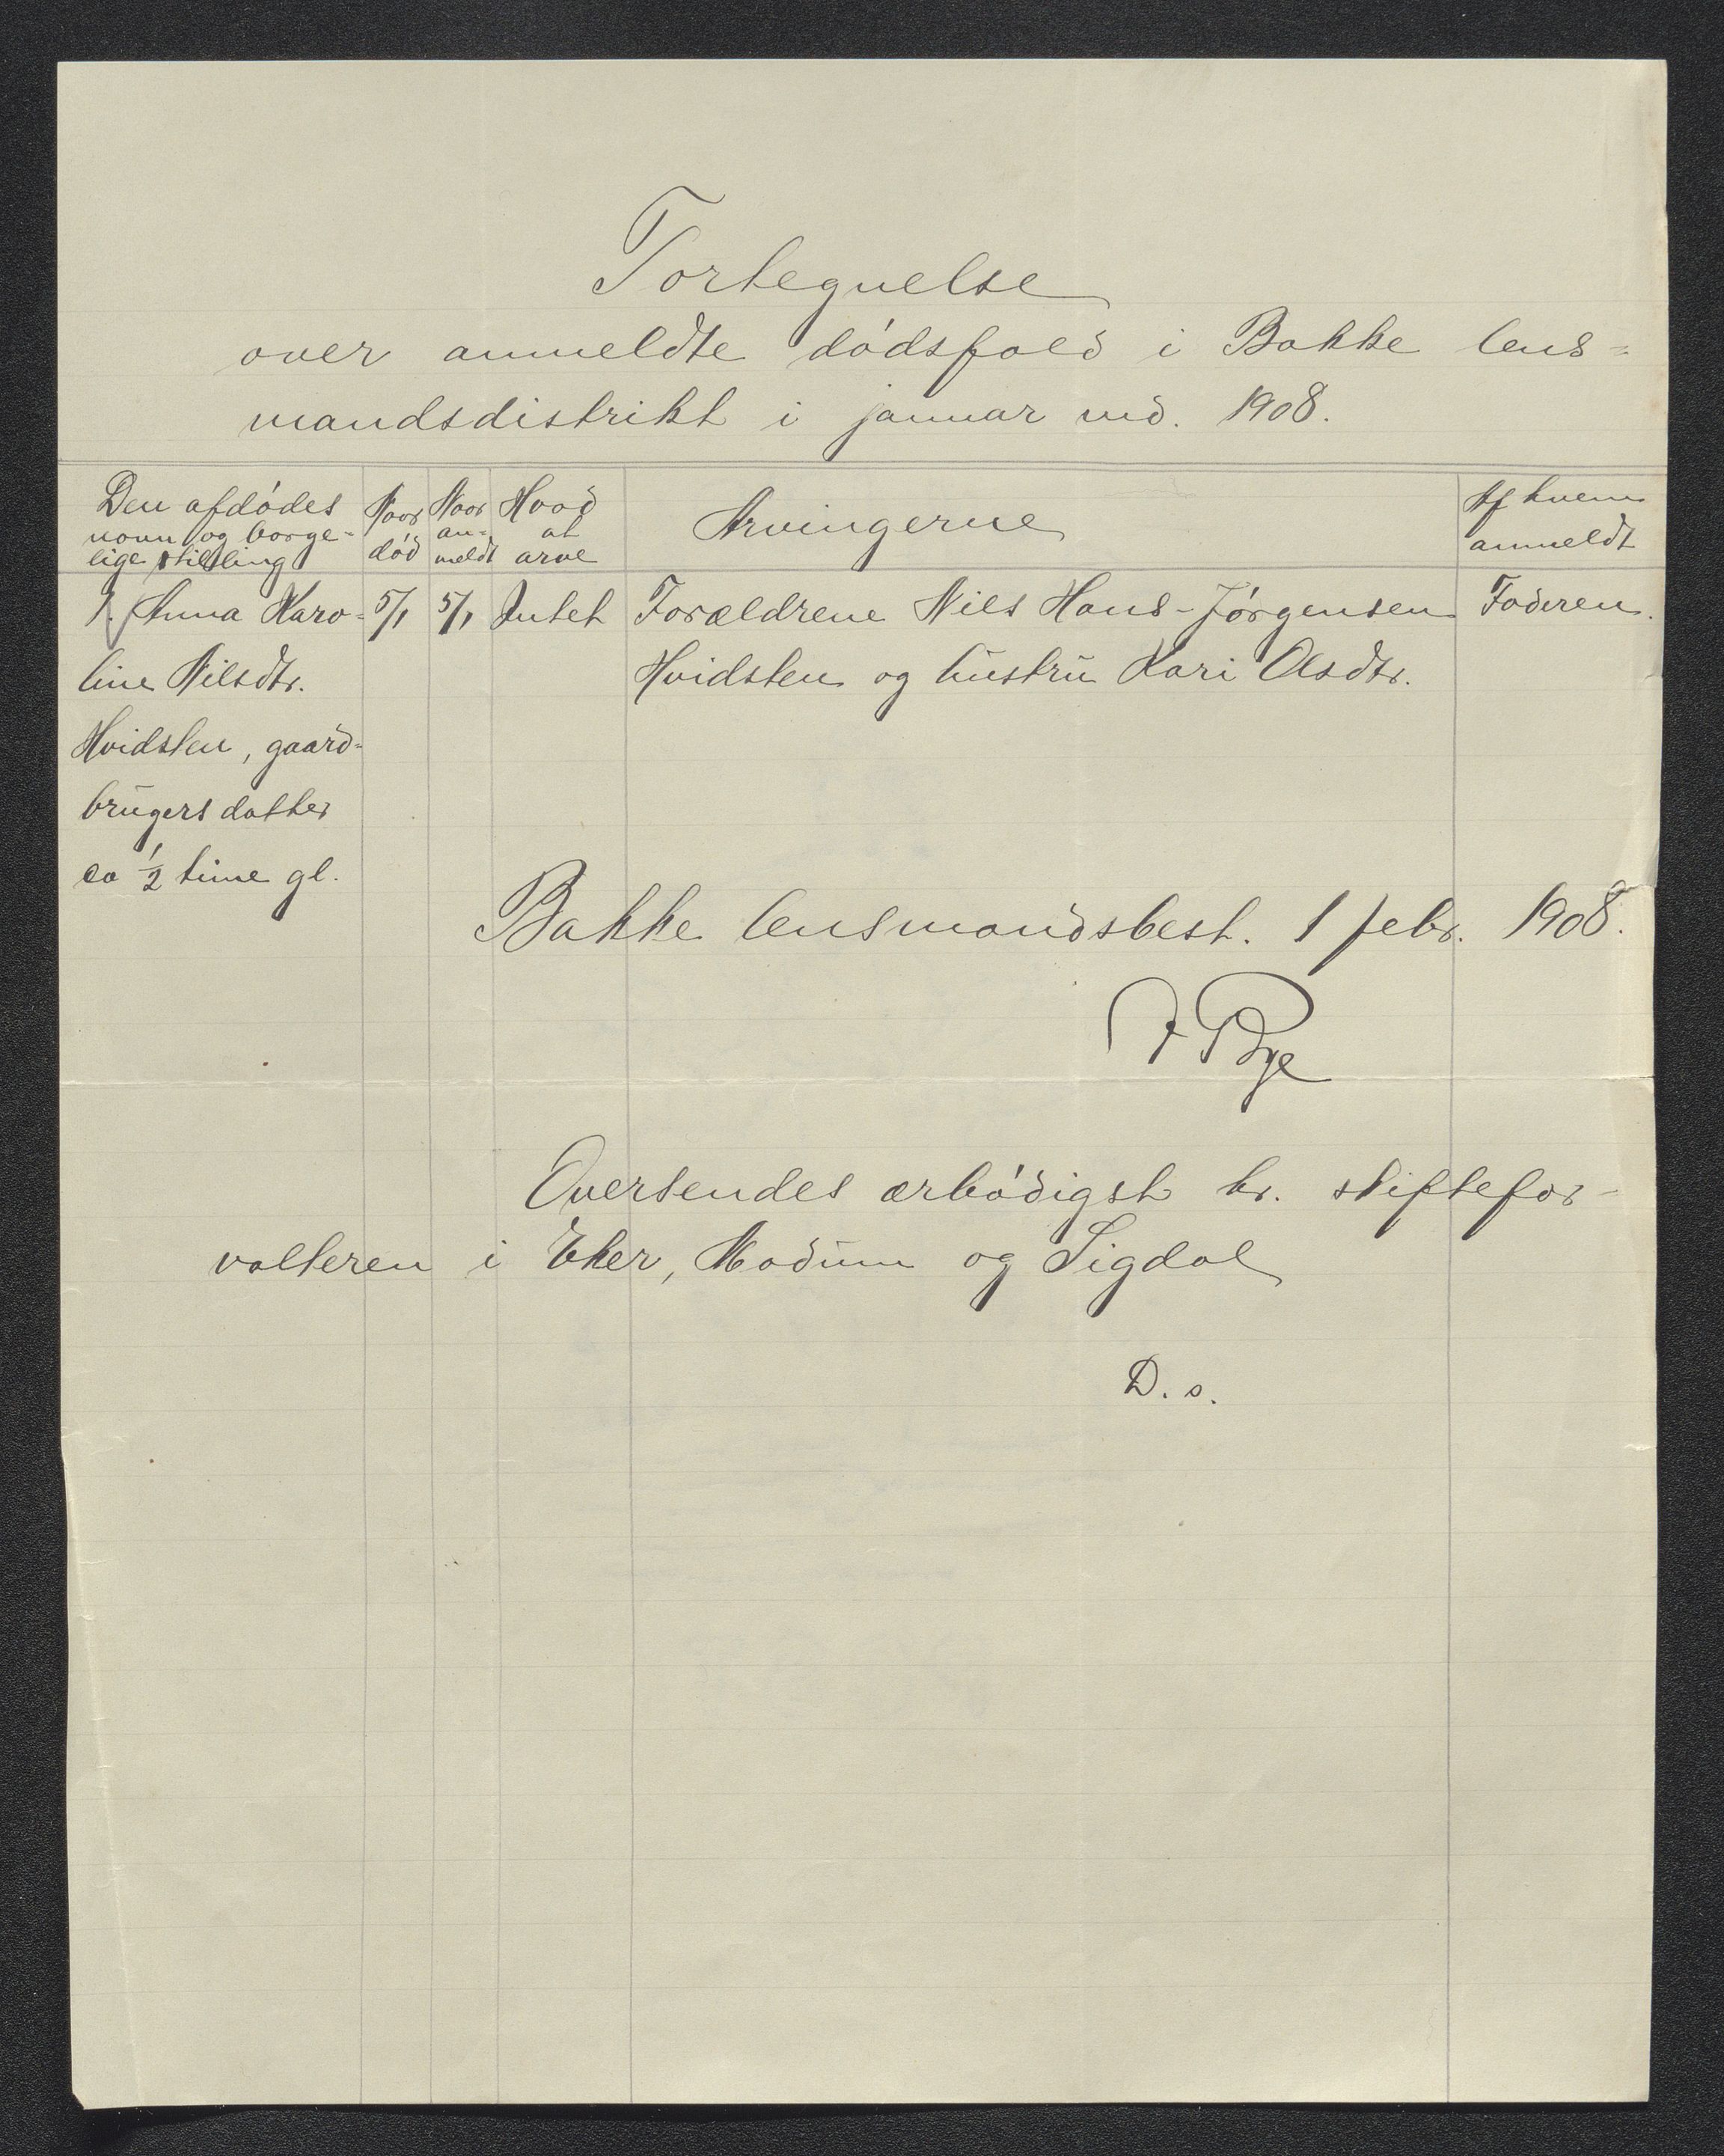 Fortegnelse
over anmeldte dødsfald i Bakke lens=
mandsdistrikt i januar md. 1908.
Den afdødes
navn og borge-
lige stilling
Naar
død
Naar
an-
meldt
Hvad
at
arve
Arvingerne
Af hvem
anmeldt
1. Anna Karo-
line Nilsdtr.
Hvidsten, gaard-
brugers datter
ca 1/2 time gl.
5/1
5/1
Intet
Forældrene Nils Hans-Jørgensen
Hvidsten og hustru Kari Olsdtr.
Faderen.
Bakke lensmandsbest. 1 febr. 1908.
Bye
Oversendes ærbødigst hr. skiftefor-
valteren i Eker, Modum og Sigdal
D. s.